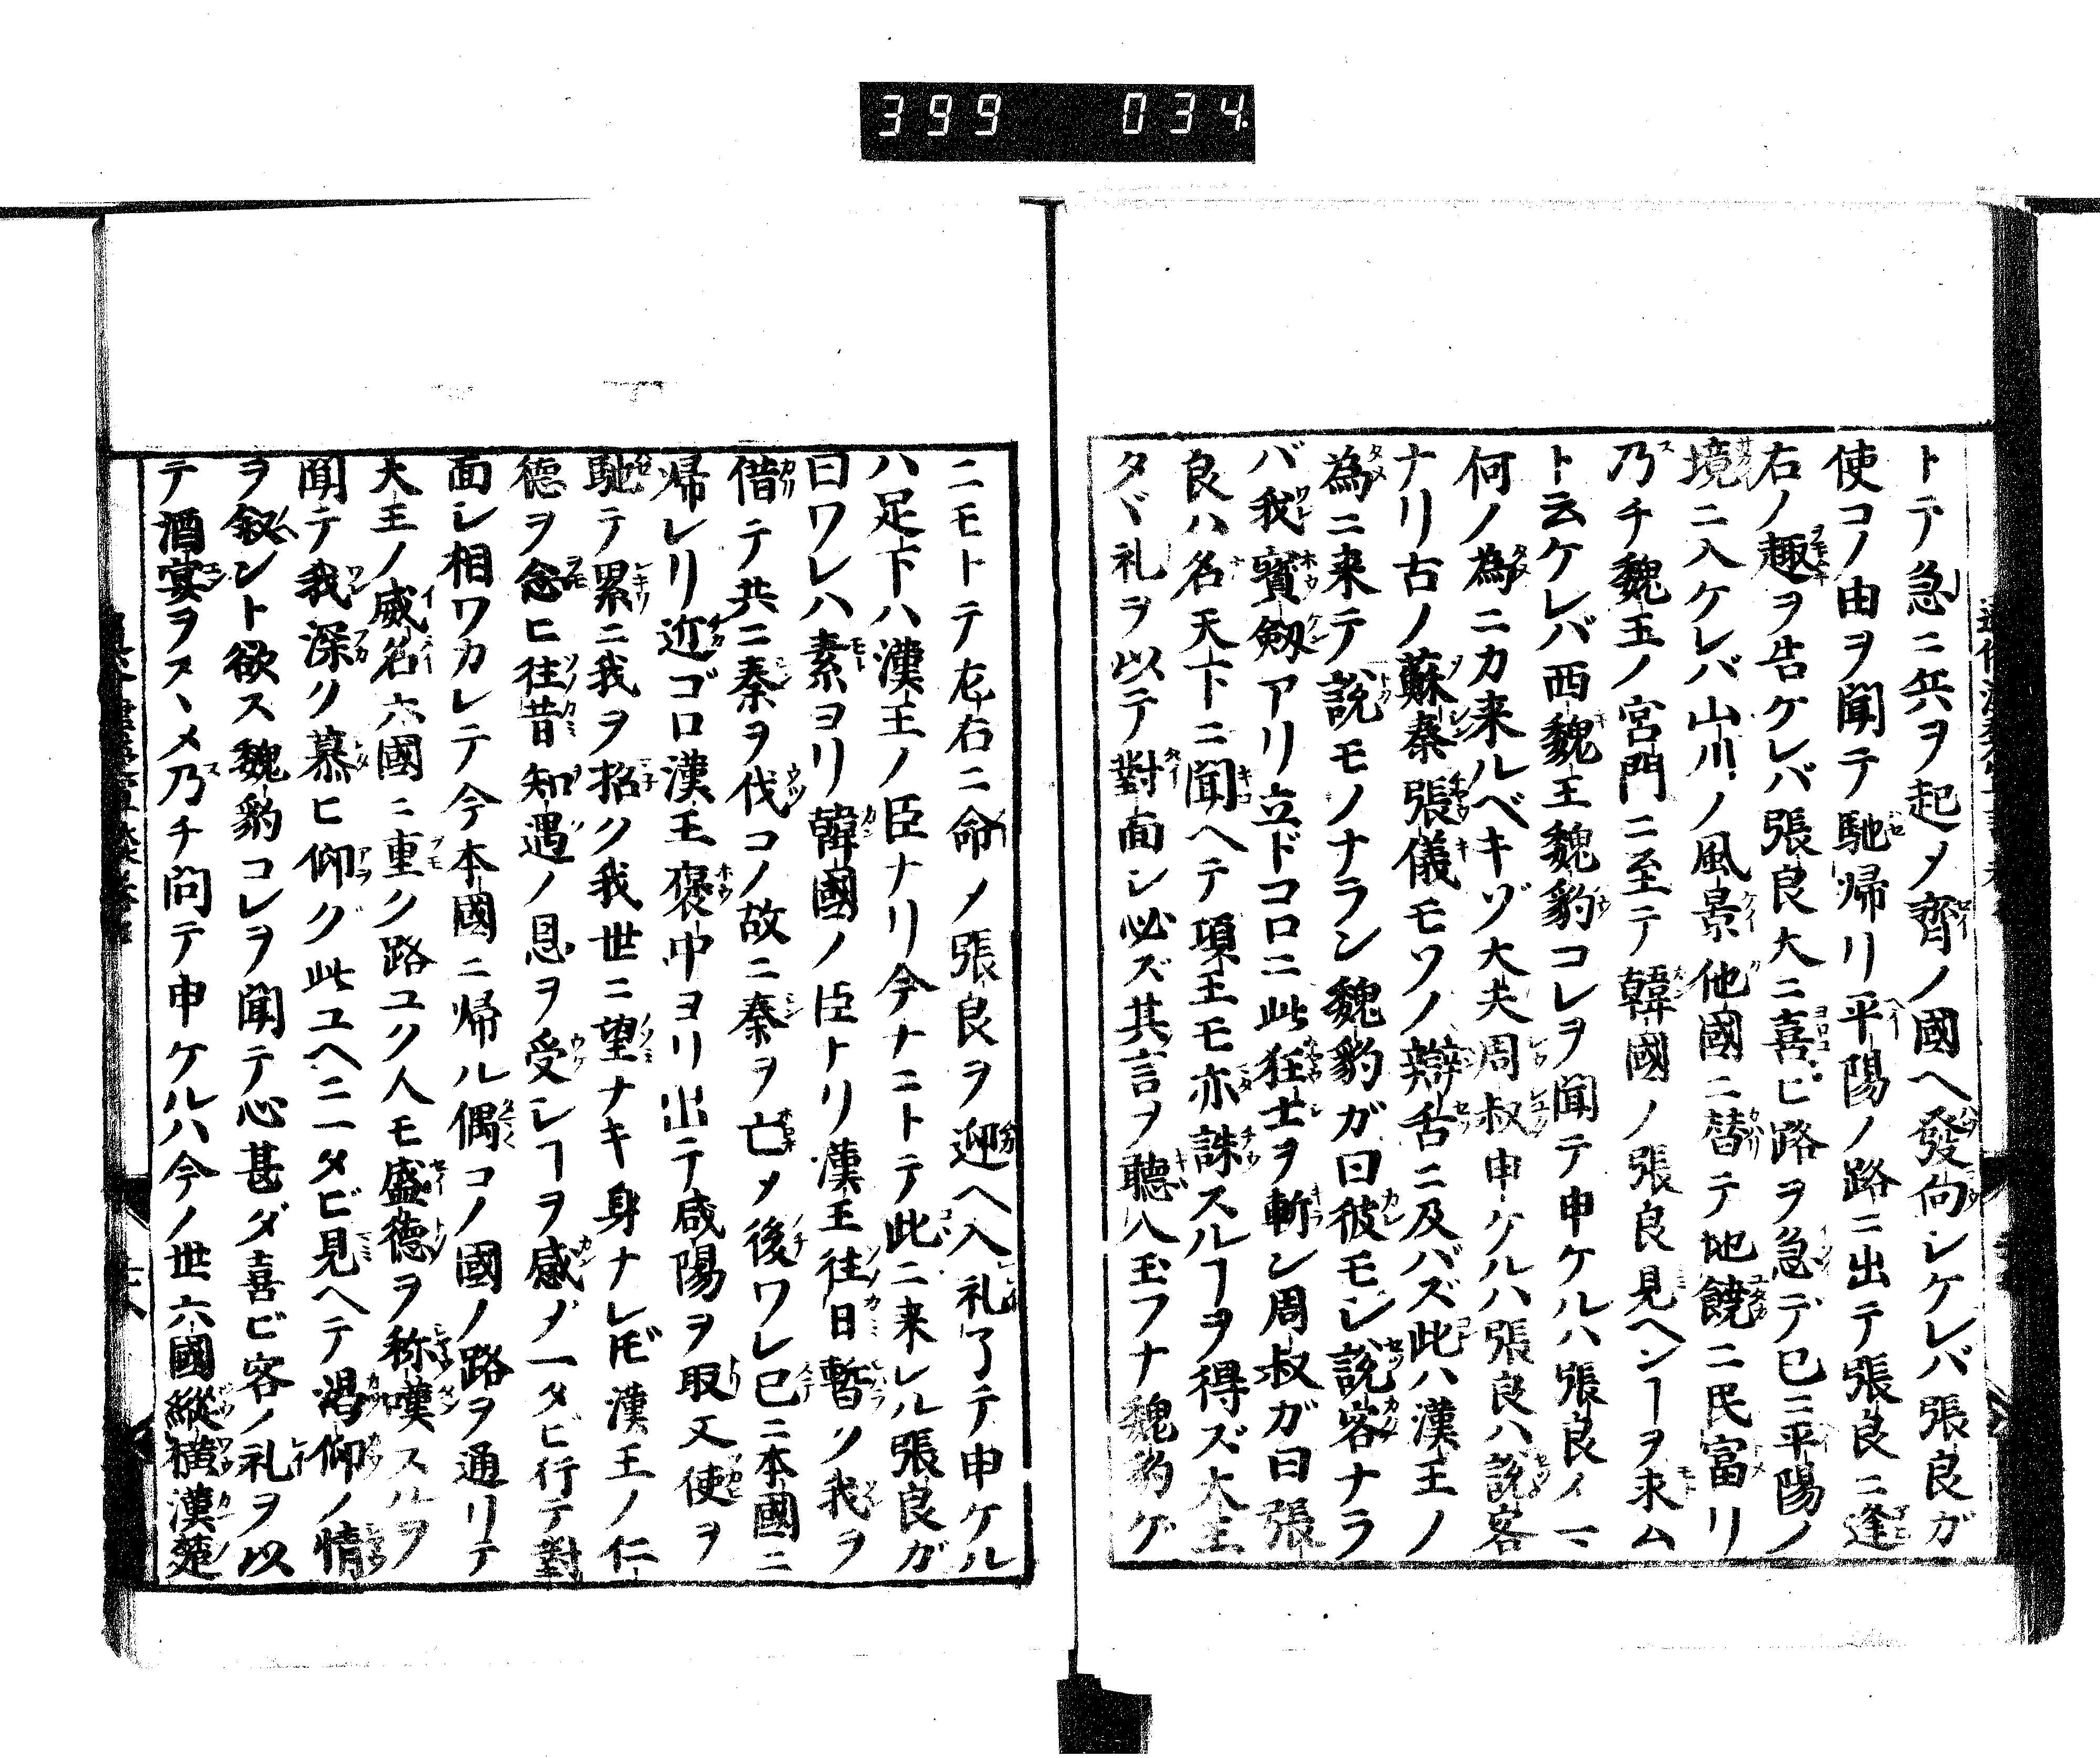 399 034
トテ急ニ兵ヲ起メ齊ノ國ヘ發向シケレバ張良ガ
使コノ由ヲ聞テ馳帰リ平陽ノ路ニ出テ張良ニ逢
右ノ趣ヲ告ケレバ張良大ニ喜ビ路ヲ急デ已ニ平陽ノ
境ニ入ケレバ山川ノ風景他國ニ替テ地饒ニ民富リ
乃チ魏王ノ宮門ニ至テ韓國ノ張良見ヘンヿヲ求ム
ト云ケレバ西魏王魏豹コレヲ聞テ申ケルハ張良イマ
何ノ為ニカ来ルベキゾ大夫周叔申ケルハ張良ハ說客
ナリ古ノ蘇秦張儀モワノ辯舌ニ及バズ此ハ漢王ノ
為ニ来テ說モノナラン魏豹ガ曰彼モシ說客ナラ
バ我寳劔アリ立ドコロニ此狂士ヲ斬ン周叔ガ曰張
良ハ名天下ニ聞ヘテ項王モ亦誅スルヿヲ得ズ大王
タヾ礼ヲ以テ對面シ必ズ其言ヲ聽ハ玉フナ魏豹ゲ
ニモトテ左右ニ命メ張良ヲ迎ヘ入礼了テ申ケル
ハ足下ハ漢王ノ臣ナリ今ナニトテ此ニ来レル張良ガ
曰ワレハ素ヨリ韓國ノ臣トリ漢王往日暫ク我ヲ
借テ共ニ秦ヲ伐コノ故ニ秦ヲ亡メ後ワレ已ニ本國ニ
帰レリ近ゴロ漢王褒中ヨリ出テ咸陽ヲ取又使ヲ
馳テ累ニ我ヲ招ク我世ニ望ナキ身ナレ𪜈漢王ノ仁
德ヲ念ヒ往昔知遇ノ恩ヲ受シヿヲ感メ一タビ行テ對
面シ相ワカレテ今本國ニ帰ル偶コノ國ノ路ヲ通リテ
大王ノ威名六國ニ重ク路ユク人モ盛德ヲ称嘆スルヲ
聞テ我深ク慕ヒ仰グ此ユヘニ一タビ見ヘテ渇仰ノ情
ヲ叙ント欲ス魏豹コレヲ聞テ心甚ダ喜ビ客ノ礼ヲ以
テ酒宴ヲスヽメ乃チ問テ申ケルハ今ノ世六國縱横漢楚